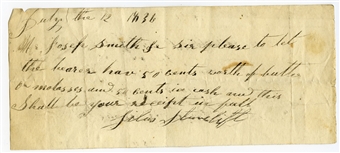 July the 12 1836
Mr Josep Smith Jr Sir please to let
the bearer have 50 cents worth of butter
or molasses and 50 cents in cash and this
Shall be your receipt in full